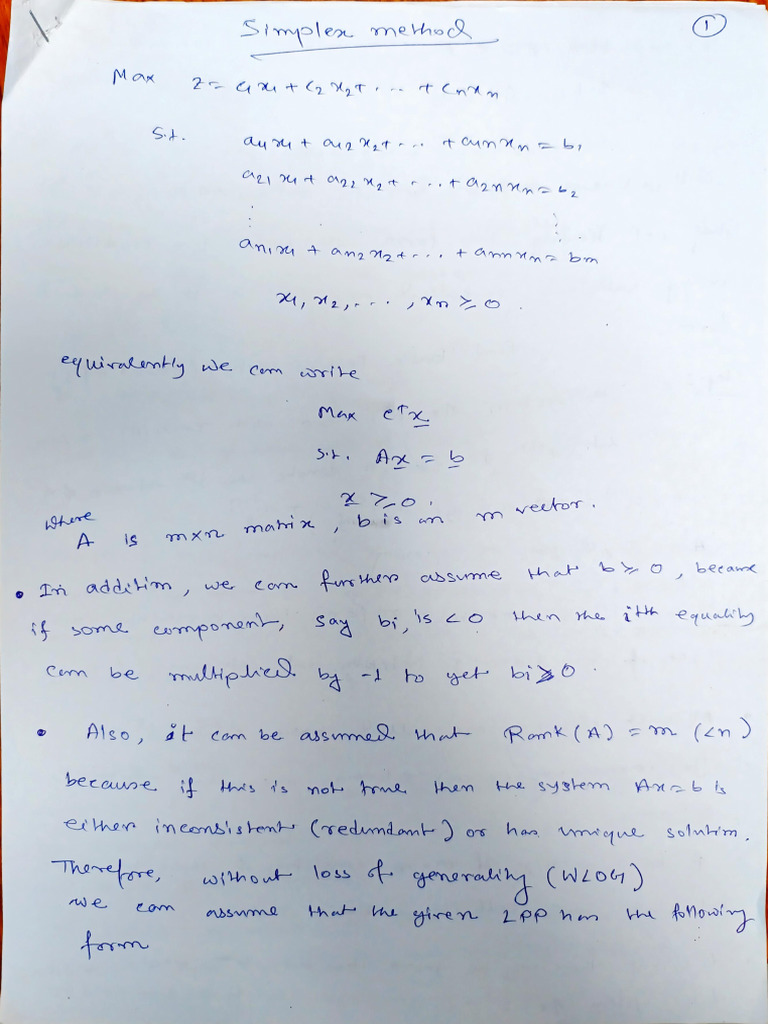 Simplex method
1
Max z = c1x1 + c2x2 + ... + cnxn
S.t. a11x1 + a12x2 + ... + a1nxn = b1
a21x1 + a22x2 + ... + a2nxn = b2
⋮ ⋮
an1x1 + an2x2 + ... + amnxn = bm
x1, x2, ..., xn ≥ 0.
equivalently we can write
Max cᵀx
S.t. Ax = b
x ≥ 0.
where
A is m×n matrix, b is an m vector.
• In addition, we can further assume that b ≥ 0, because
if some component, say bi, is < 0 then the ith equality
can be multiplied by -1 to get bi ≥ 0.
• Also, it can be assumed that Rank(A) = m (<n)
because if this is not true then the system Ax = b is
either inconsistent (redundant) or has unique solution.
Therefore, without loss of generality (WLOG)
we can assume that the given LPP has the following
form